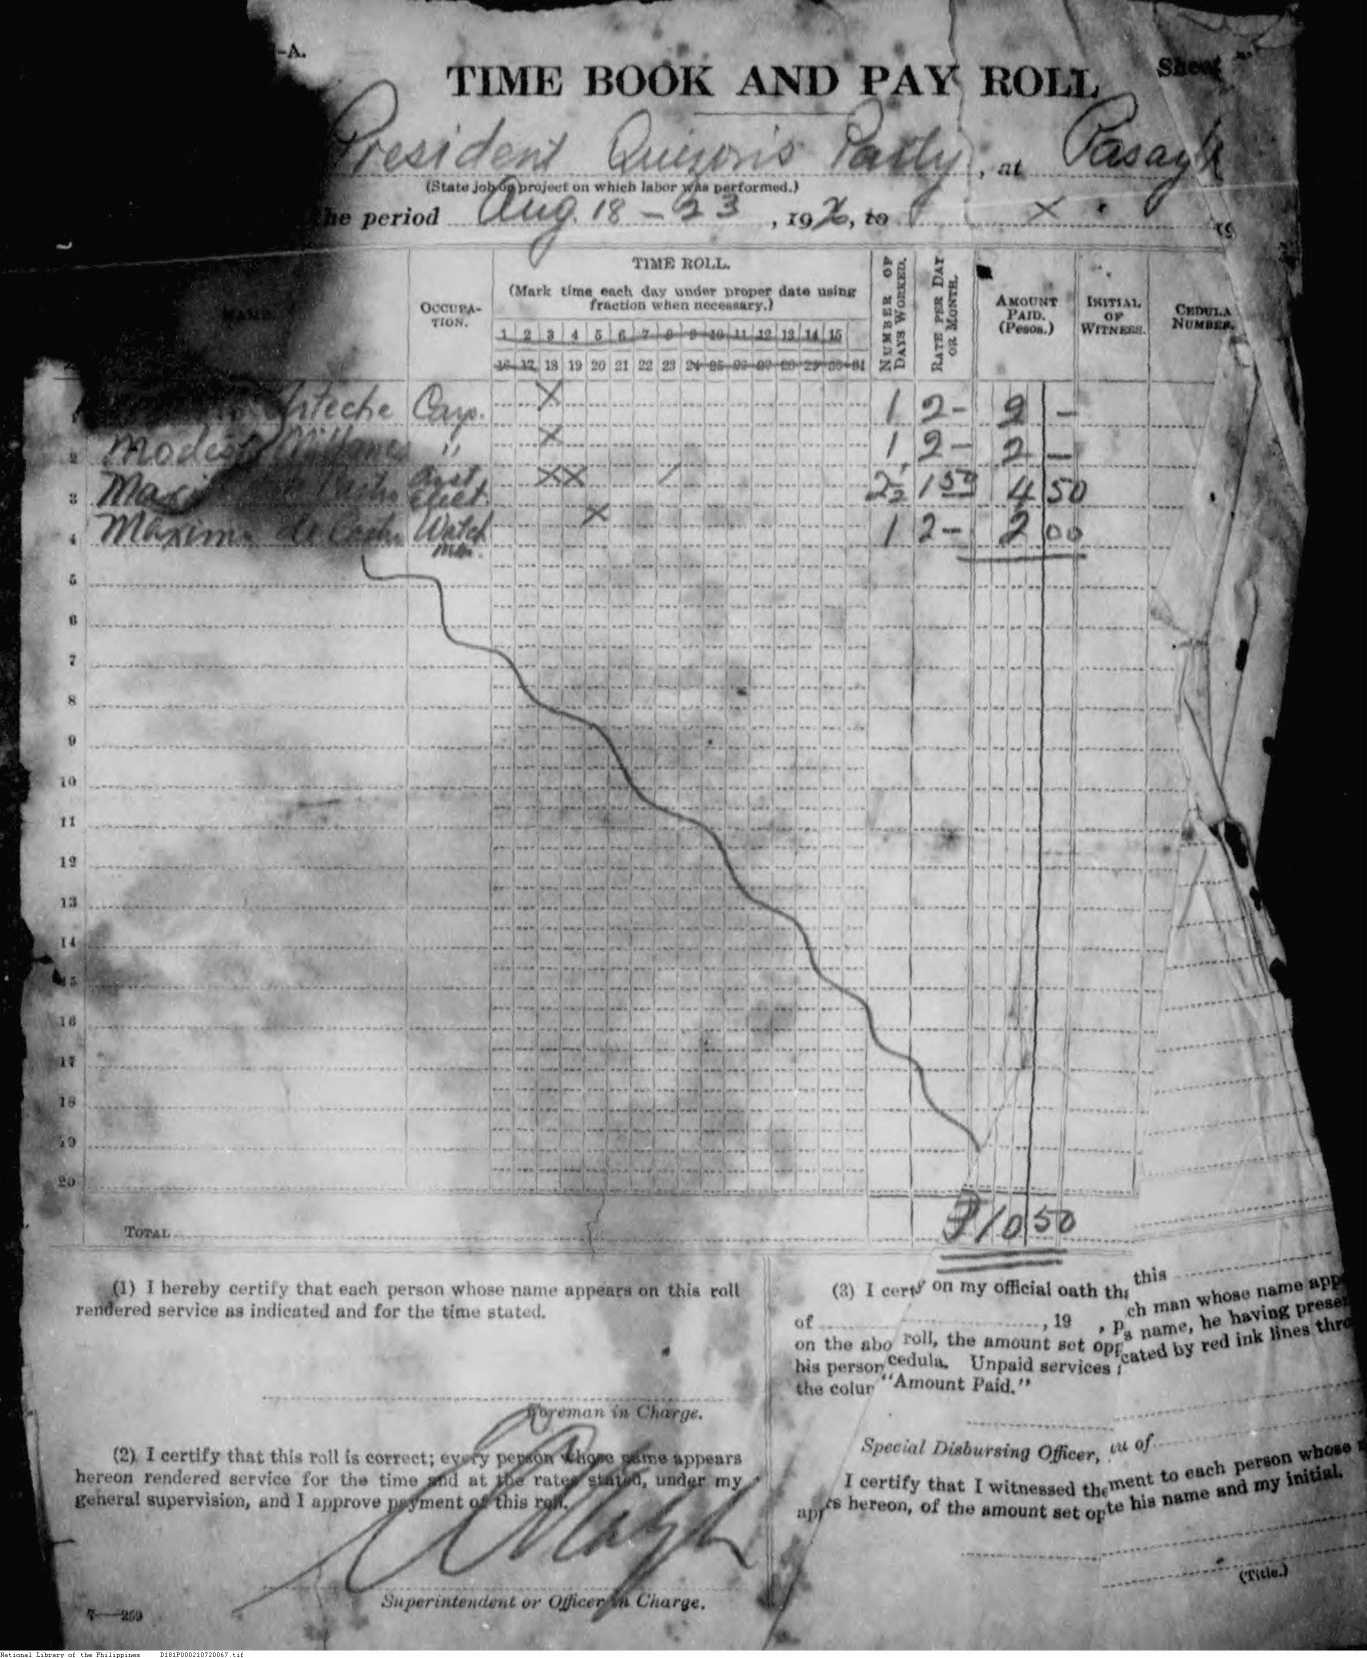 -A.
Sheet
TIME BOOK AND PAY ROLL
President Quezon's Party, at Pasay
(State job or project on which labor was performed.)
the period Aug. 18 - 23, 19 , to X 19
NAME.
OCCUPATION.
TIME ROLL.
(Mark time each day under proper date using fraction when necessary.)
1 2 3 4 5 6 7 8 9 10 11 12 13 14 15
16 17 18 19 20 21 22 23 24 25 26 27 28 29 30 31
NUMBER OF DAYS WORKED.
RATE PER DAY OR MONTH.
AMOUNT PAID. (Pesos.)
INITIAL OF WITNESS.
CEDULA NUMBER.
1 Arteche Carp. X 1 2- 2 -
2 Modesto " X 1 2- 2 -
3 Asst Elect. X X / 2 1/2 1 50 4 50
4 Watch man. X 1 2- 2 00
5
6
7
8
9
10
11
12
13
14
15
16
17
18
19
20
TOTAL ₱10 50
(1) I hereby certify that each person whose name appears on this roll
rendered service as indicated and for the time stated.
Foreman in Charge.
(2) I certify that this roll is correct; every person whose name appears
hereon rendered service for the time and at the rates stated, under my
general supervision, and I approve payment of this roll.
Superintendent or Officer in Charge.
7—259
(3) I certify on my official oath tha this
of , 19 , p ch man whose name app
on the abo roll, the amount set opp s name, he having prese
his person cedula. Unpaid services i cated by red ink lines thro
the colum "Amount Paid."
Special Disbursing Officer, u of
I certify that I witnessed the ment to each person whose
app rs hereon, of the amount set op te his name and my initial.
(Title.)
National Library of the Philippines D181P000210720067.tif